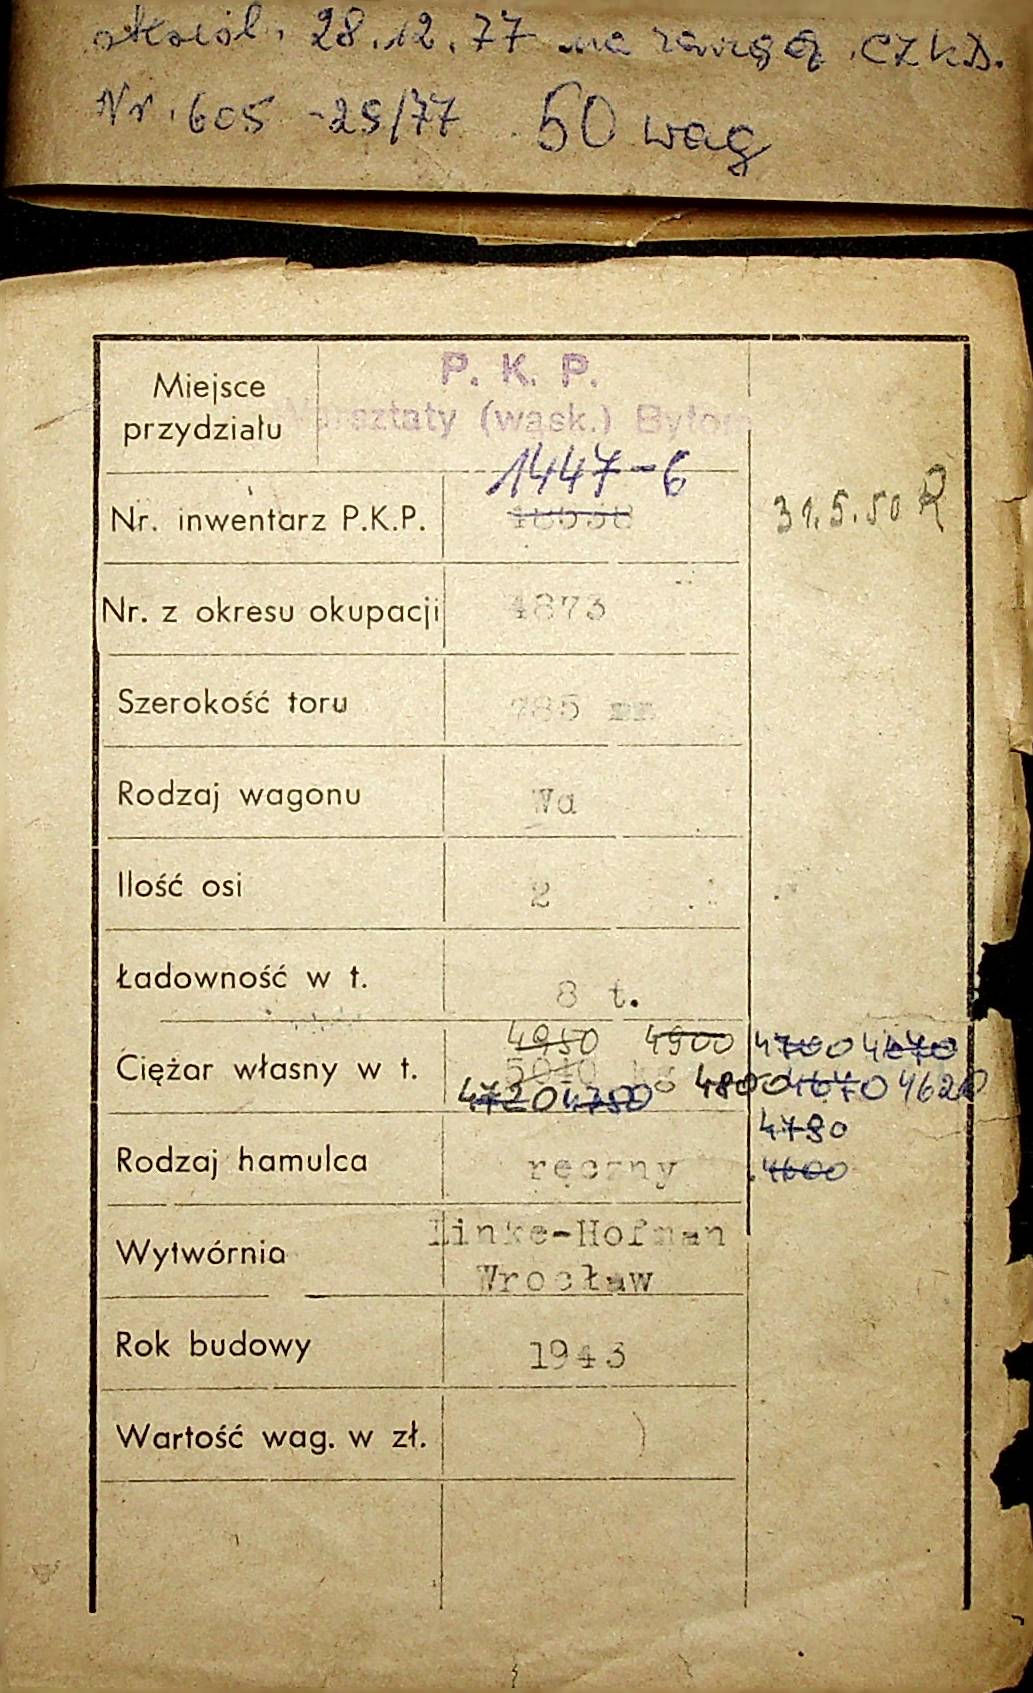 28.12.77 na CZKD.
Nr. 605 -25/77 50 wag
Miejsce przydziału
P. K. P.
Warsztaty (wąsk.) Bytom
1447-6
Nr. inwentarz P.K.P.
31.5.50 R
Nr. z okresu okupacji 4873
Szerokość toru 785 mm
Rodzaj wagonu Wa
Ilość osi 2
Ładowność w t. 8 t.
4950 4900 4700 4670
Ciężar własny w t. 5040 kg
4720 4750 4800 4670 4620
4780
Rodzaj hamulca ręczny 4600
Wytwórnia Linke-Hofman
Wrocław
Rok budowy 1943
Wartość wag. w zł.